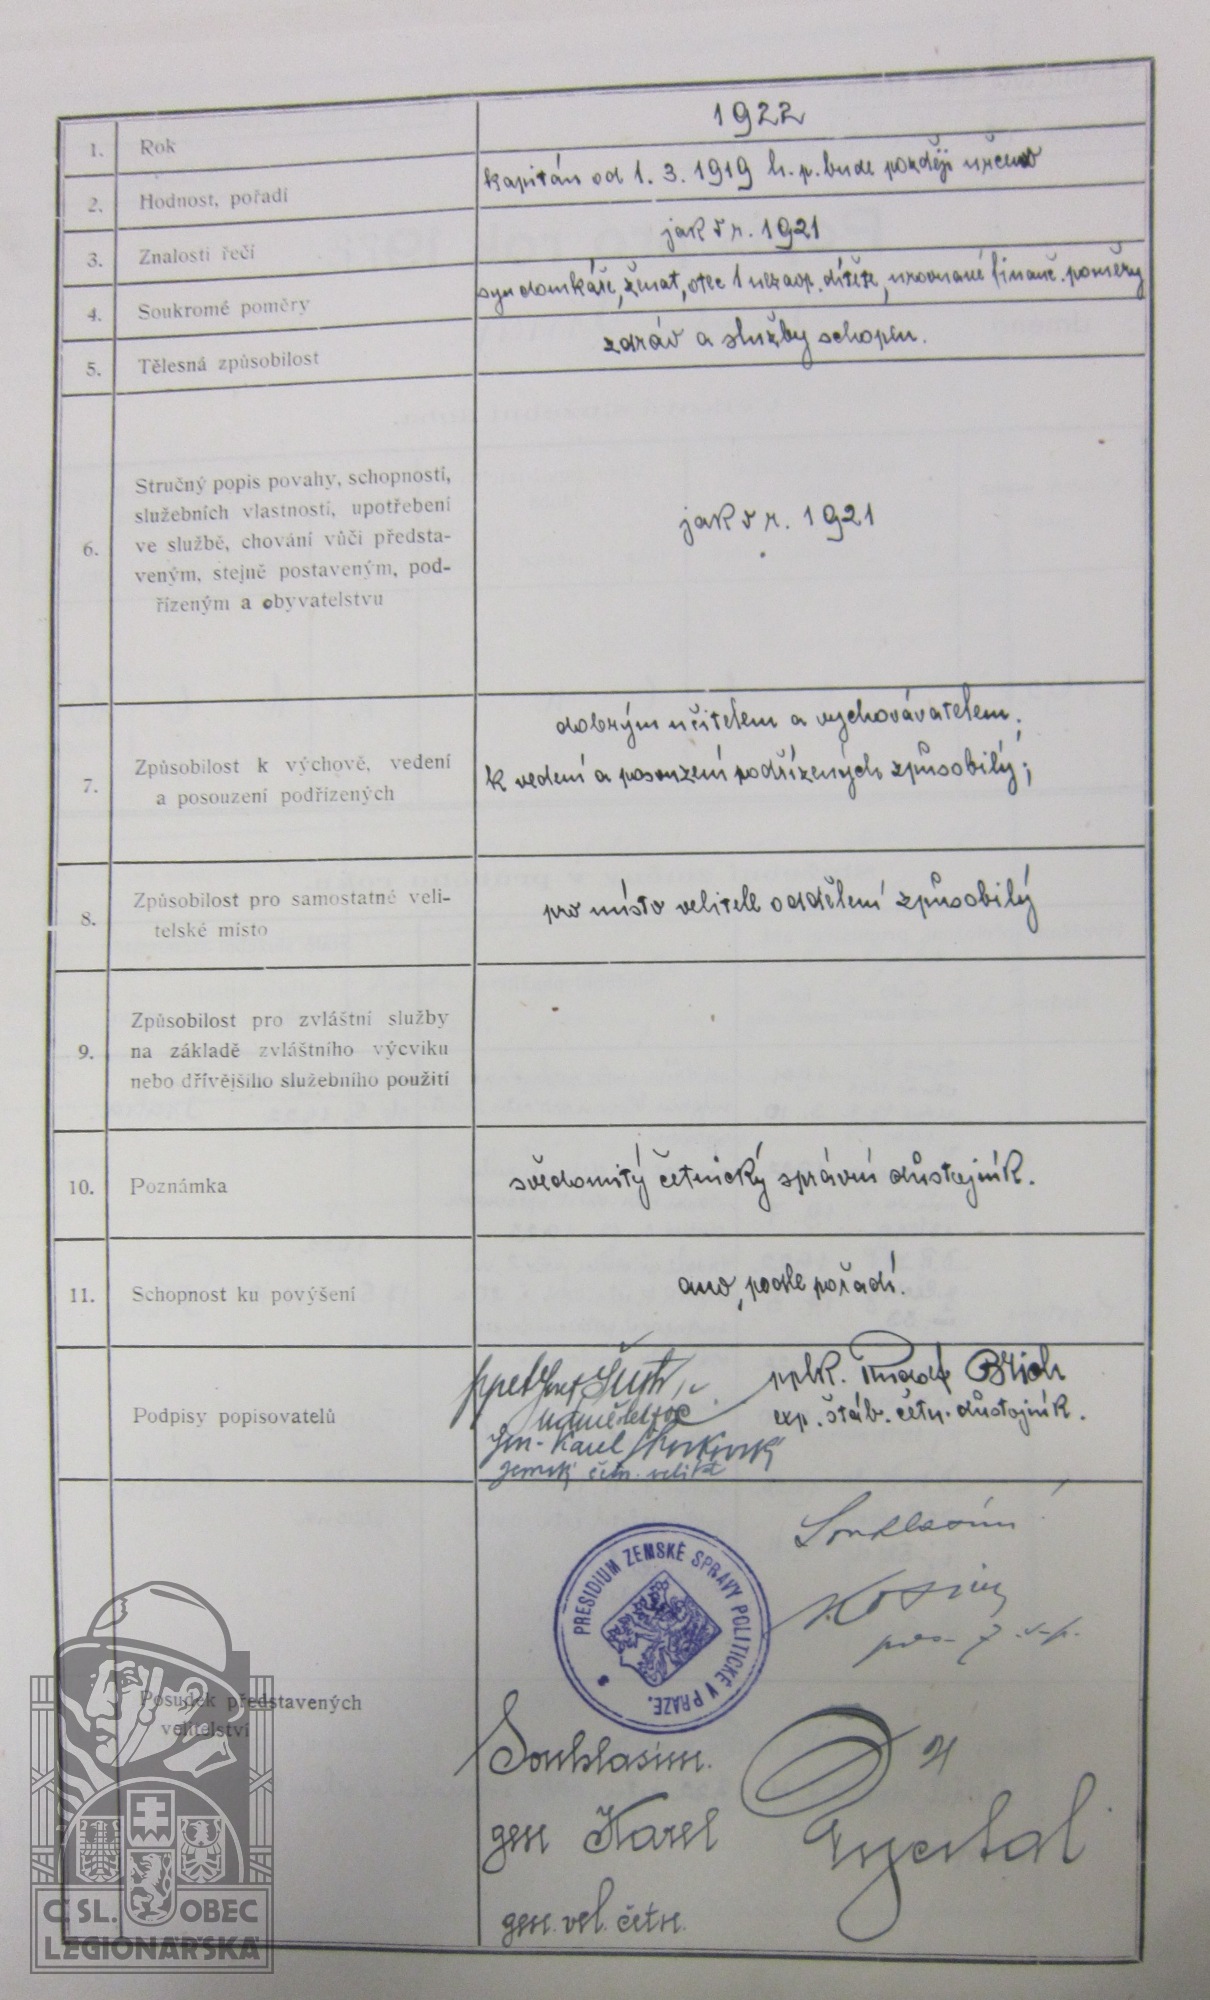 1. Rok 1922
2. Hodnost, pořadí kapitán od 1. 3. 1919 h. p. bude později určeno
3. Znalosti řečí jak v r. 1921
4. Soukromé poměry syn domkáře, ženat, otec 1 nezaop. dítěte, urovnané finanč. poměry
5. Tělesná způsobilost zdráv a služby schopen.
6. Stručný popis povahy, schopností,
služebních vlastností, upotřebení
ve službě, chování vůči předsta-
veným, stejně postaveným, pod-
řízeným a obyvatelstvu
jak v r. 1921
7. Způsobilost k výchově, vedení
a posouzení podřízených
dobrým učitelem a vychovávatelem;
k vedení a posouzení podřízených způsobilý;
8. Způsobilost pro samostatné veli-
telské místo
pro místo velitele oddělení způsobilý
9. Způsobilost pro zvláštní služby
na základě zvláštního výcviku
nebo dřívějšího služebního použití
10. Poznámka svědomitý četnický správní důstojník.
11. Schopnost ku povýšení ano, podle pořadí.
Podpisy popisovatelů
pplk. Rudolf
exp. štáb. četn. důstojník.
gen. Karel
zemský četn. velitel
Posudek představených
velitelství
Souhlasím
PRESIDIUM ZEMSKÉ SPRÁVY POLITICKÉ V PRAZE.
Souhlasím.
gen Karel
gen. vel. četn.
Č. SL. OBEC
LEGIONÁŘSKÁ